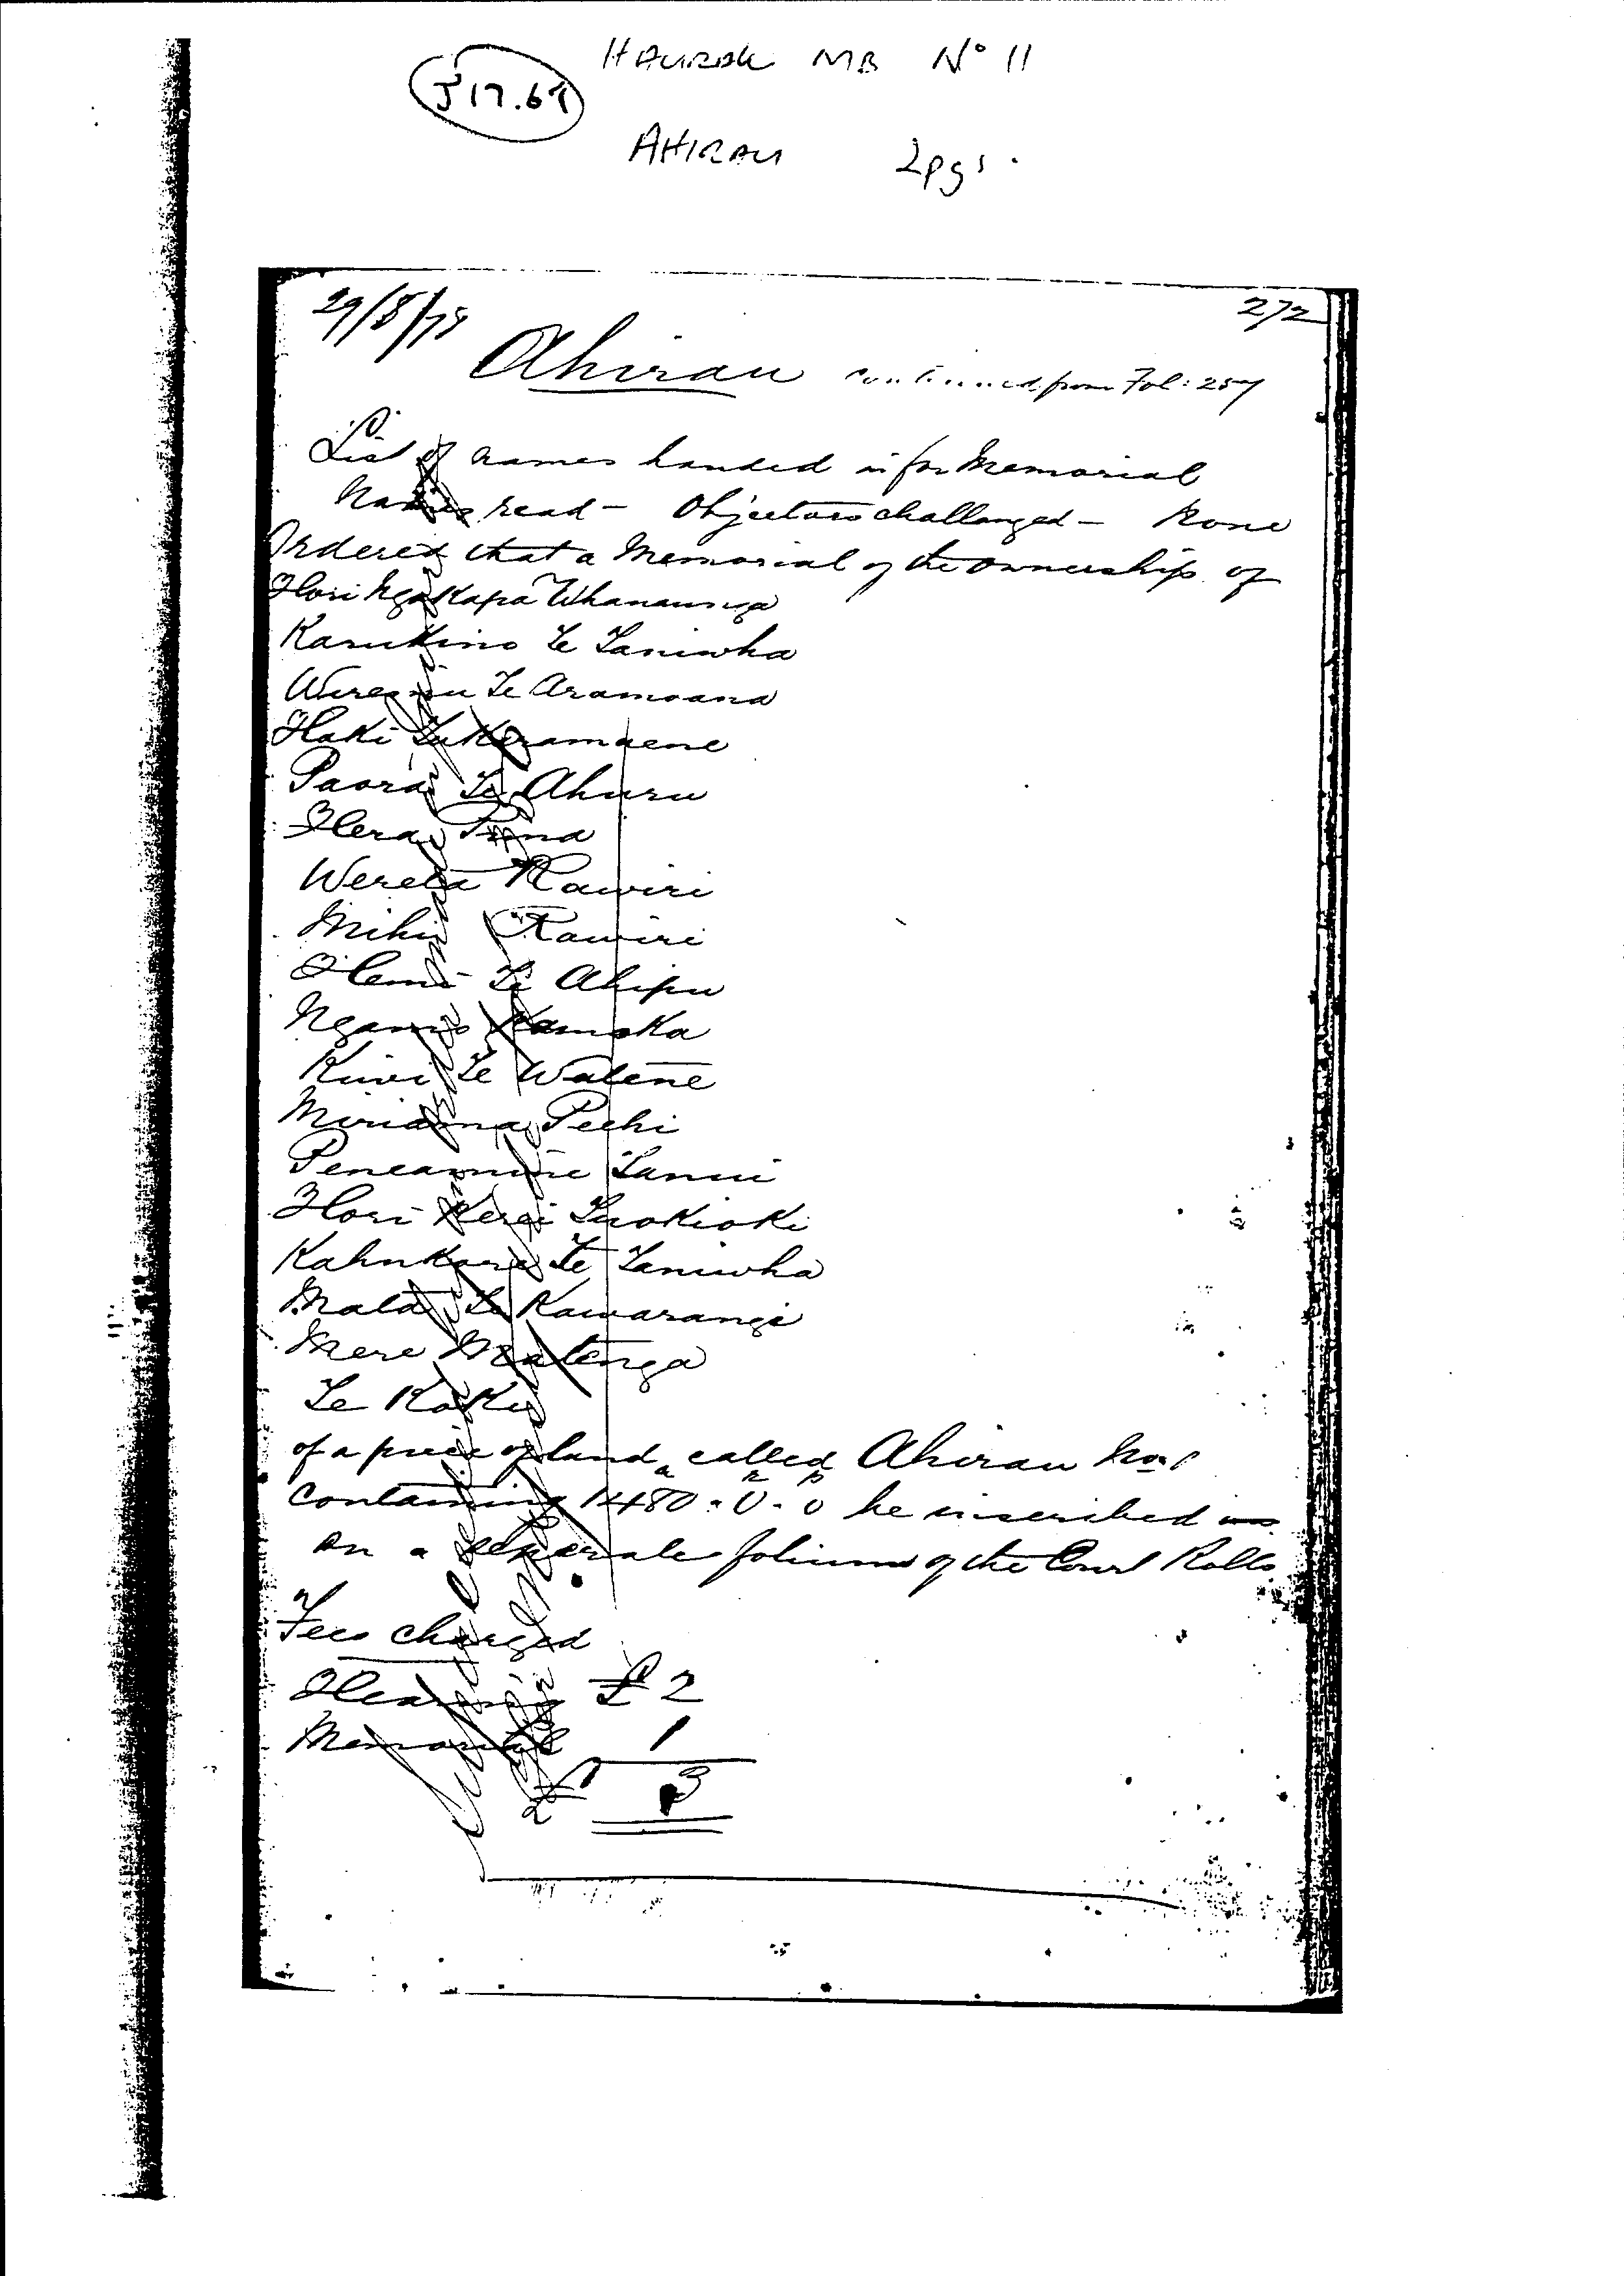 HAURAKI MB Nº 11
J 17.69
AHIRAU 2pgs.
29/8/78
272
Ahirau continued from Fol: 257
List of names handed in for Memorial
Names read - Objectors challenged - None
Ordered that a Memorial of the ownership of
Hori Ngakapa Whanaunga
Karukino Te Taniwha
Wiremu Te Aramoana
Haki
Paora Te Ahuru
Hera
Wereta Rawiri
Mihi Rawiri
Hemi Te Ahipu
Kiwi Te Watene
Miriama Peehi
Peneamine Tanui
Hori Kerei Tuokioki
Te Taniwha
Mata Te Kawarangi
Mere Matenga
Te
of a piece of land called Ahirau No 1
a r p
containing 1480 . 0 . 0 be inscribed
on a separate folium of the Court Rolls
Fees charged
Hearing £ 2
Memorial 1
3